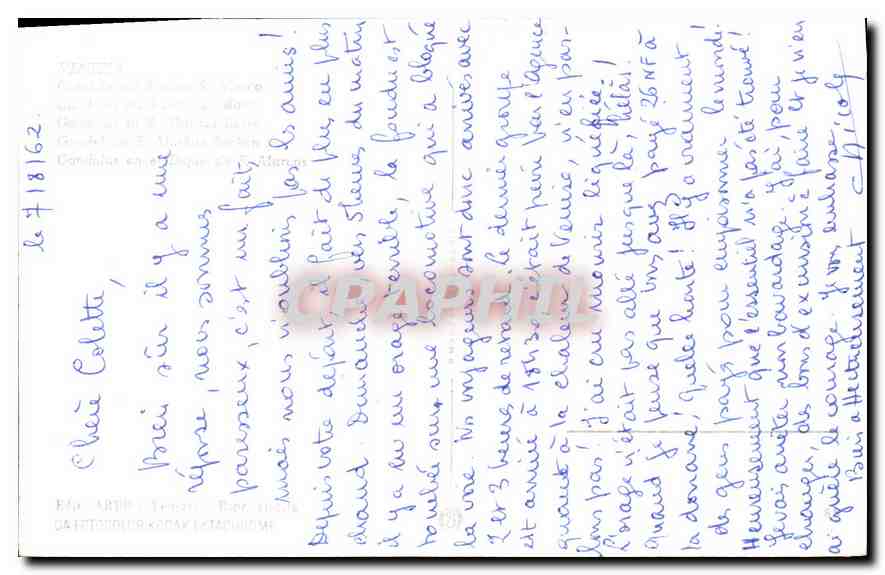 le 7/8/62.
Chère Colette,
Bien sûr il y a une
réponse, nous sommes
paresseux, c'est un fait,
mais nous n'oublions pas les amis !
Depuis votre départ, il fait de plus en plus
chaud. Dimanche vers 5 heures du matin
il y a eu un orage terrible, la foudre est
tombée sur une locomotive qui a bloqué
la voie. Nos voyageurs sont donc arrivés avec
2 et 3 heures de retard, le dernier groupe
est arrivé à 18h30 c'était pour l'agence
quant à la chaleur de Venise, n'en par-
lons pas ! J'ai cru mourir liquéfiée !
L'orage n'était pas allé jusque là, hélas !
quand je pense que vous avez payé 26 NF à
la douane ! Quelle honte ! Il y a vraiment
des gens payés pour empoisonner le monde.
Heureusement que l'essentiel n'a pas été trouvé !
Je vais arrêter mon bavardage, j'ai, pour
changer, des bons d'excursion à faire et je n'en
ai guère le courage. Je vous embrasse,
Bien affectueusement
Nicole
VENEZIA
CPAPHIL
DA EKTACOLOR KODAK EKTACHROME